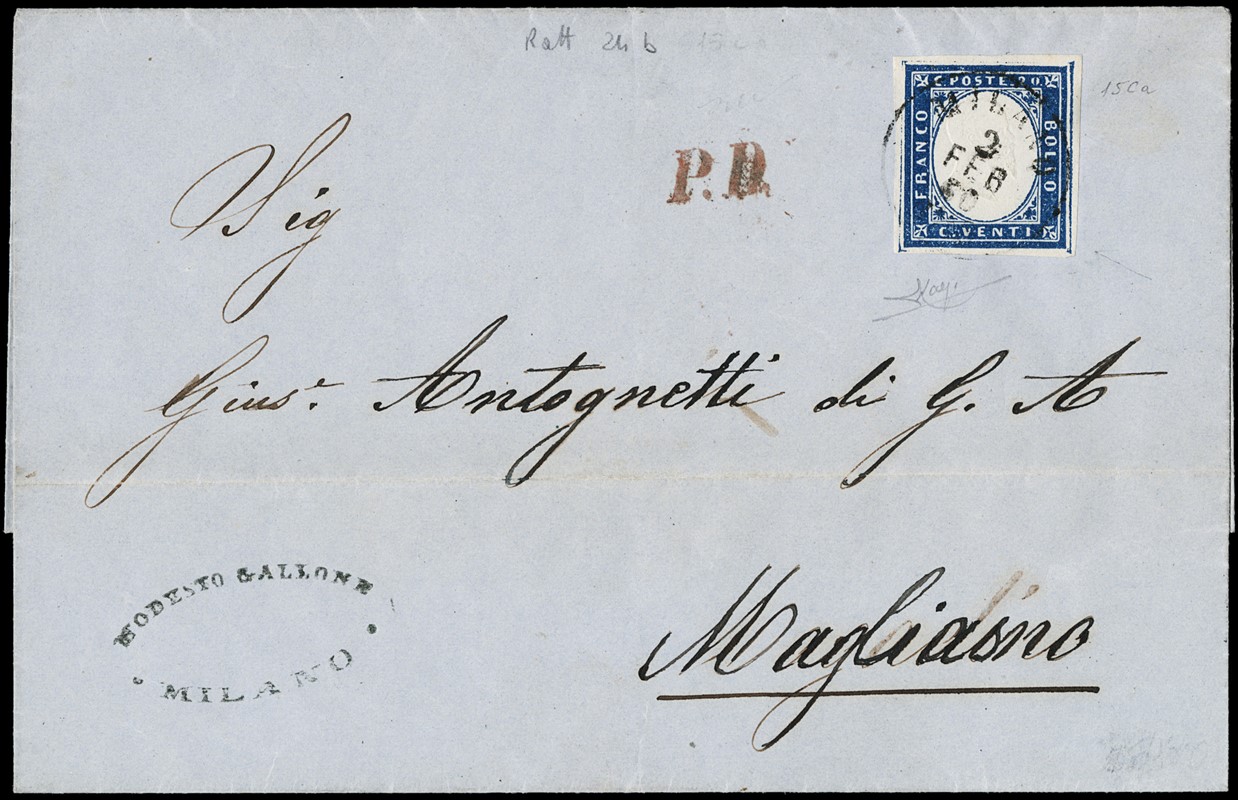 Ratt 24 b 15 Ca
15 Ca
C. POSTE 20.
FRANCO
BOLLO
C. VENTI
MILANO
2
FEB
60
P.D.
Sig
Gius.e Antognetti di G. A
Magliasno
MODESTO GALLONE
MILANO